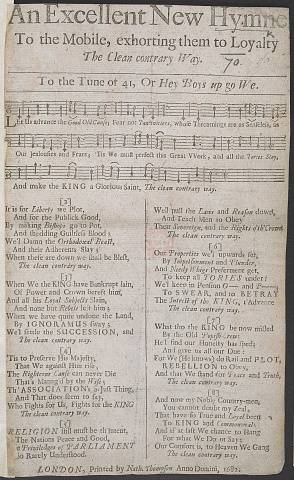 An Excellent New Hymne
To the Mobile, exhorting them to Loyalty
The Clean contrary Way.
70.
To the Tune of 41, Or Hey Boys up go We.
Let us advance the Good Old Cause, Fear not Tantivitiers, whose Threatnings are as Senseless, as
our Jealousies and Fears; 'Tis We must perfect this Great Work, and all the Tories Slay,
And make the KING a Glorious Saint, The clean contrary way.
[2]
It is for Liberty we Plot,
And for the Publick Good,
By making Bishops go to Pot,
And shedding Guiltless Blood:
We'l Damn the Orthodoxal Beast,
And their Adherents Slay;
When these are down we shall be Blest,
The clean contrary way.
[3]
When We the KING have Bankrupt lain,
Of Power and Crown bereft him,
And all his Loyal Subjects Slain,
And none but Rebels left him;
When we have quite undone the Land,
By IGNORAMUS sway;
We'l settle the SUCCESSION, and
The clean contrary way.
[4]
'Tis to Preserve His Majesty,
That We against Him rise,
The Righteous Cause can never Die
That's Manag'd by the Wise;
Th' ASSOCIATION's a Just Thing,
And That does seem to say,
Who Fights for Us, Fights for the KING
The clean contrary way.
[5]
RELIGION still must be th'intent,
The Nations Peace and Good,
The Priviledges of PARLIAMENT
So Rarely Understood.
We'l pull the Laws and Reason down,
And Teach Men to Obey
Their Sovereign, and the Rights of th' Crown
The clean contrary way.
[6]
Our Properties we'l upwards set,
By Imprisonment and Plunder,
And Needy Whigs Preferment get,
To keep all TORIES under:
We'l keep in Pension O— and P—
To SWEAR, and to BETRAY
The Interest of the KING, t'Advance
The clean contrary way.
[7]
What tho the KING be now misled
By the Old Popish Crew,
He'l find our Honesty has sped,
And give us all our Due:
For We (He knows) do Rail and PLOT,
REBELLION to Obey,
And that We stand for Peace and Truth,
The clean contrary way.
[8]
And now my Noble Country-men,
You cannot doubt my Zeal,
That have so True and Loyal been
To KING and Commonweal;
And if at last We chance to Hang
For what We Do or Say;
Our Comfort is, to Heaven We Gang
The clean contrary way.
LONDON, Printed by Nath. Thompson Anno Domini, 1682.